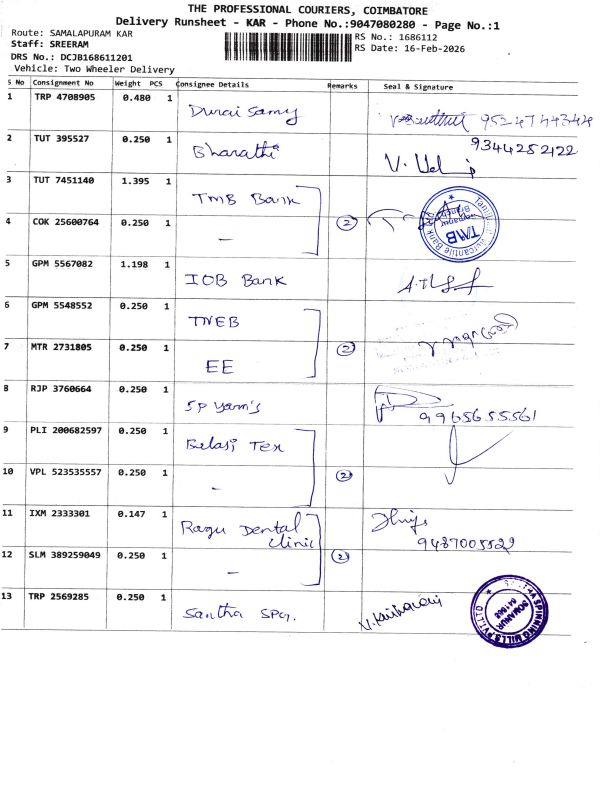 THE PROFESSIONAL COURIERS, COIMBATORE
Delivery Runsheet - KAR - Phone No.:9047080280 - Page No.:1
Route: SAMALAPURAM KAR
RS No.: 1686112
Staff: SREERAM
RS Date: 16-Feb-2026
DRS No.: DCJB168611201
Vehicle: Two Wheeler Delivery
S No Consignment No Weight PCS Consignee Details Remarks Seal & Signature
1 TRP 4708905 0.480 1 Durai Samy 9524744344
2 TUT 395527 0.250 1 Bharathi 9344252122
3 TUT 7451140 1.395 1 TMB Bank
4 COK 25600764 0.250 1 - 2 TMB
5 GPM 5567082 1.198 1 IOB Bank
6 GPM 5548552 0.250 1 TNEB
7 MTR 2731805 0.250 1 EE 2
8 RJP 3760664 0.250 1 SP Yarn's 9965655561
9 PLI 200682597 0.250 1 Belasi Tex
10 VPL 523535557 0.250 1 - 2
11 IXM 2333301 0.147 1 Ragu Dental Clinic 9487005529
12 SLM 389259049 0.250 1 - 2
13 TRP 2569285 0.250 1 Santha SPG. SPINNING MILLS PVT LTD SOMANUR